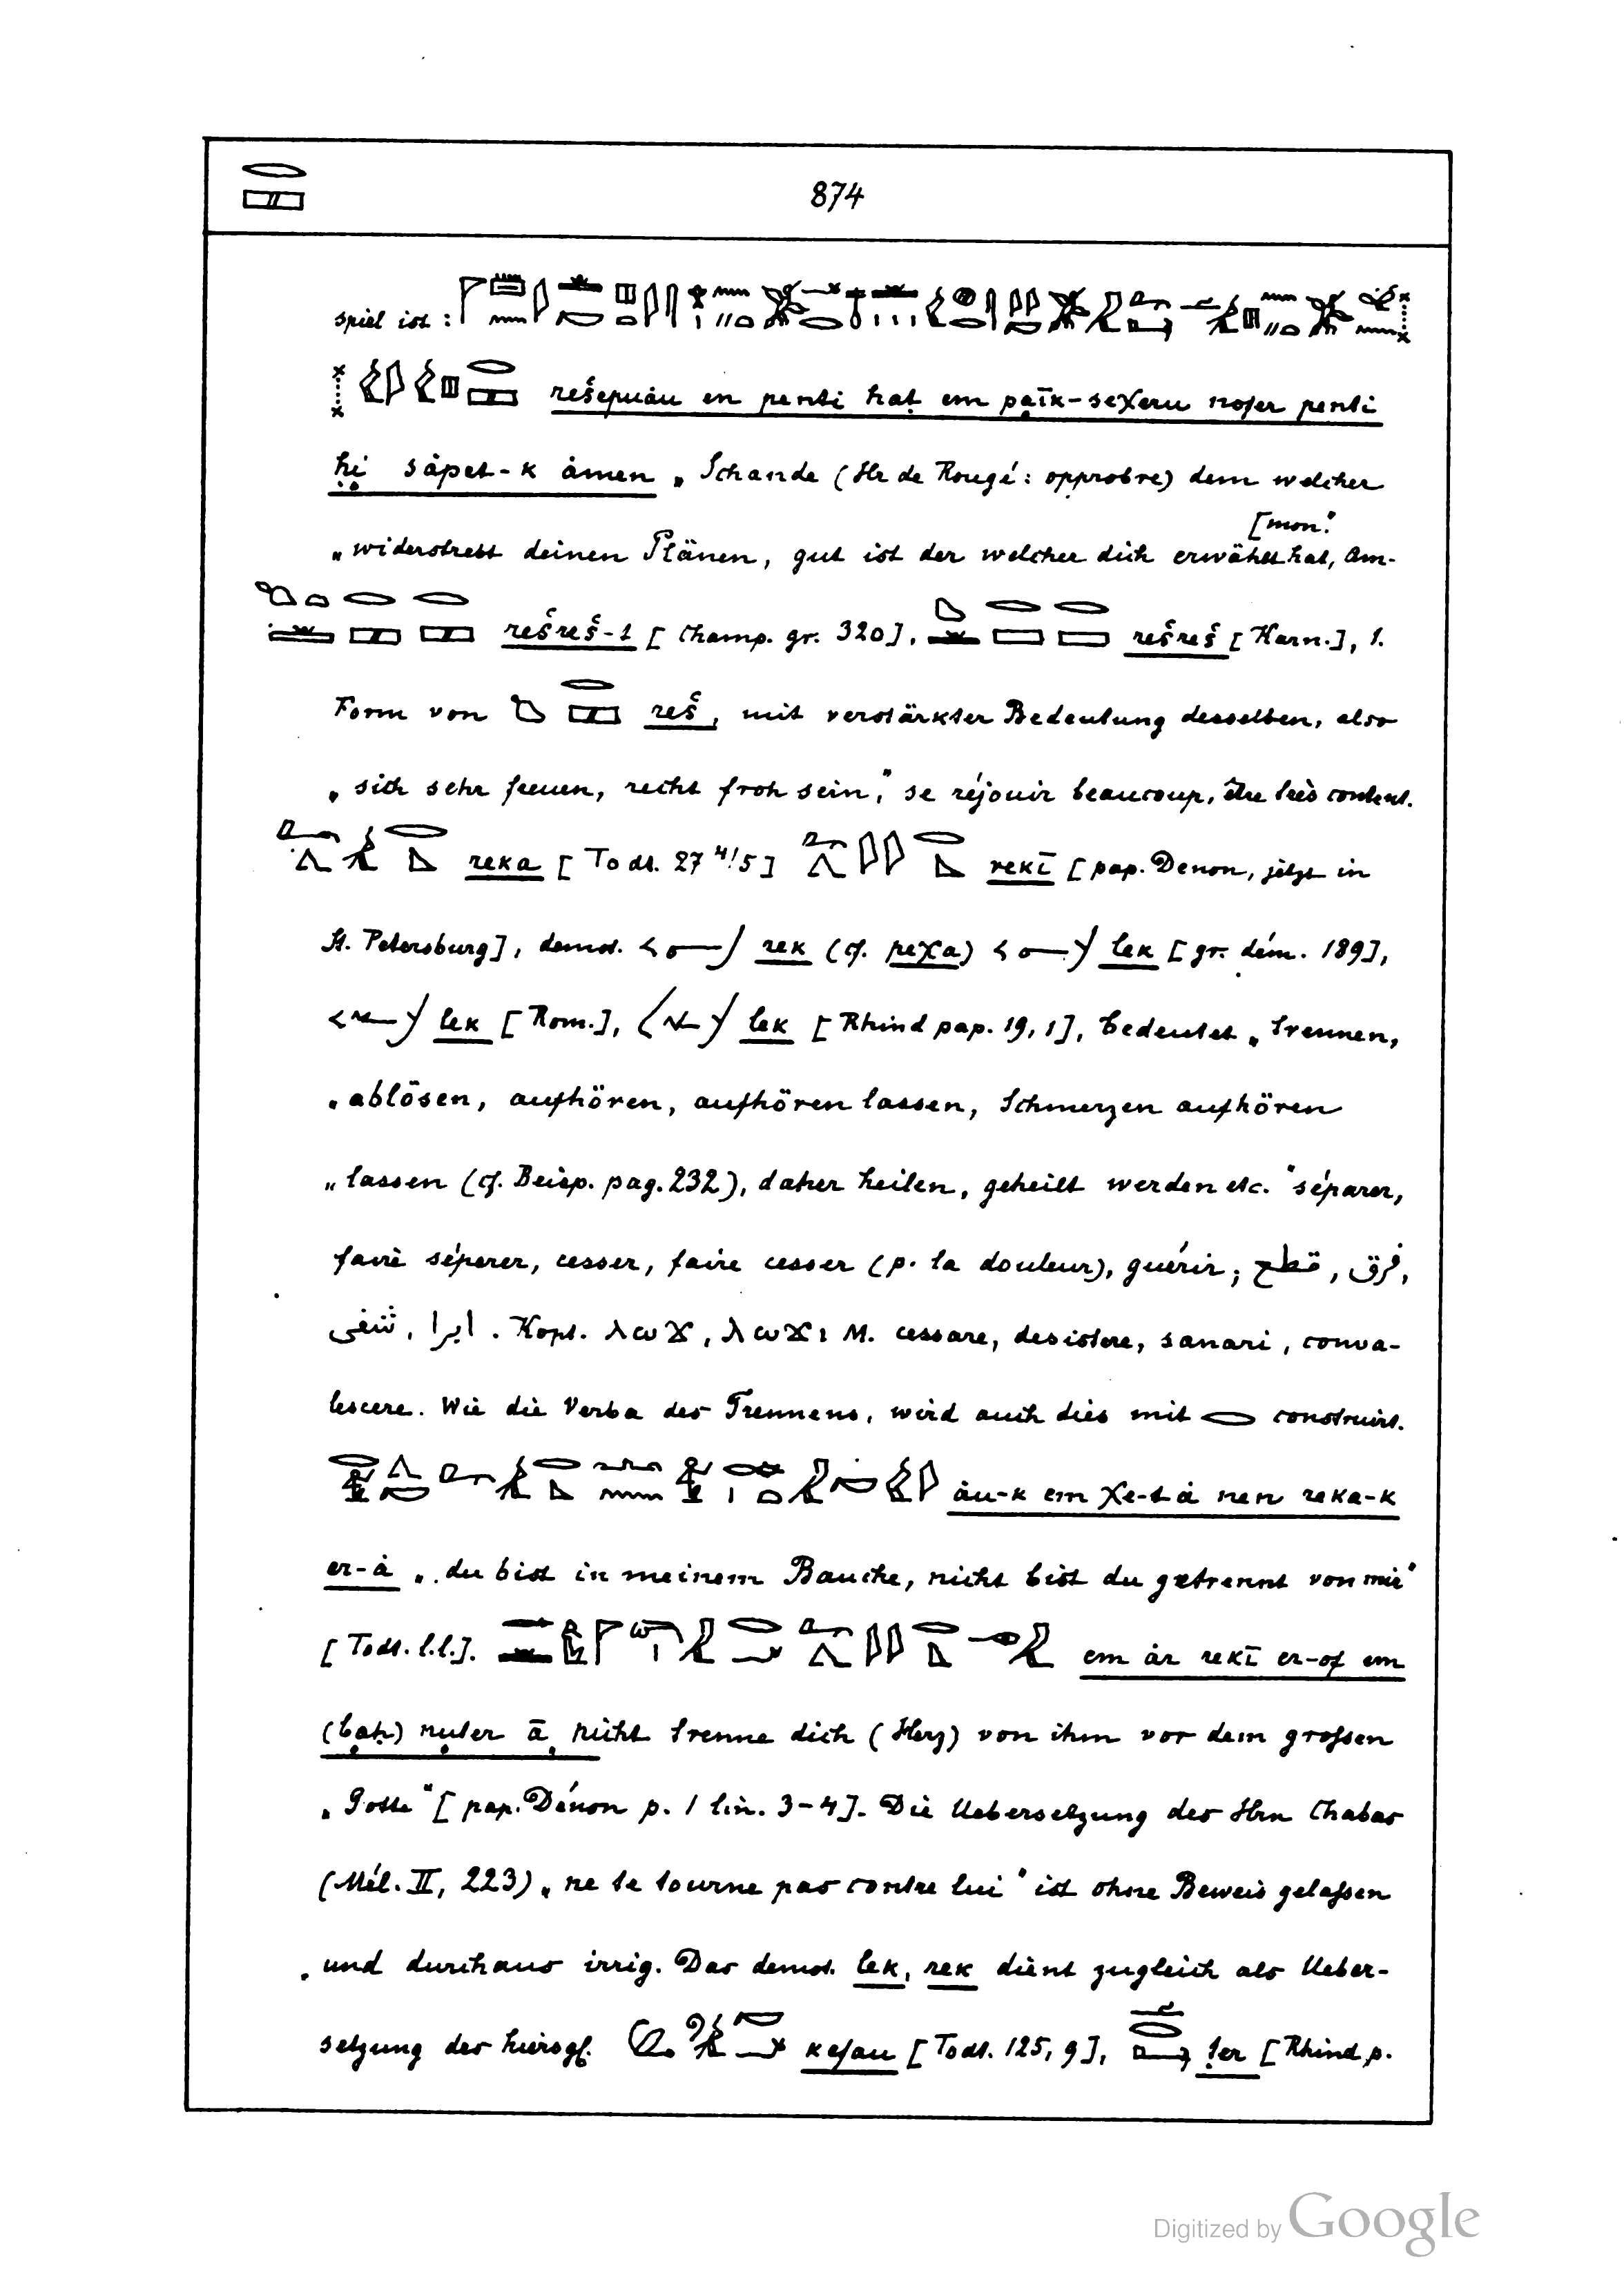 874
spiel ist:
rešepuàu en penti hat em paīk-seχeru nofer penti
hi sàpet-k àmen „Schande (Hr de Rougé: opprobre) dem welcher
[mon."
„widerstrebt deinen Plänen, gut ist der welcher dich erwählt hat, Am-
rešreš-t [Champ. gr. 320], rešreš [Karn.], 1.
Form von reš, mit verstärkter Bedeutung desselben, also
„sich sehr freuen, recht froh sein," se réjouir beaucoup, être très content.
reka [Todt. 27 4/5] rekī [pap. Denon, jetzt in
St. Petersburg], demot. rek (cf. peχa) lek [gr. dém. 189],
lek [Rom.], lek [Rhind pap. 19, 1], bedeutet „trennen,
„ablösen, aufhören, aufhören lassen, Schmerzen aufhören
„lassen (cf. Beisp. pag. 232), daher heilen, geheilt werden etc." séparer,
faire séperer, cesser, faire cesser (p. la douleur), guérir; قطع, فرق,
ابرا, شفى. Kopt. ⲗⲱϫ, ⲗⲱϫⲓ M. cessare, desistere, sanari, conva-
lescere. Wie die Verba des Trennens, wird auch dies mit construirt.
àu-k em χe-t à nen reka-k
er-à „du bist in meinem Bauche, nicht bist du getrennt von mir"
[Todt. l.l.]. em àr rekī er-of em
(bah) nuter ā nicht trenne dich (Herz) von ihm vor dem grossen
„Gotte" [pap. Dénon p. 1 lin. 3-4]. Die Uebersetzung des Hrn Chabas
(Mél. II, 223) „ne te tourne pas contre lui" ist ohne Beweis gelassen
und durchaus irrig. Das demot. lek, rek dient zugleich als Ueber-
setzung der hierogl. kefau [Todt. 125, 9], ter [Rhind p.
Digitized by Google